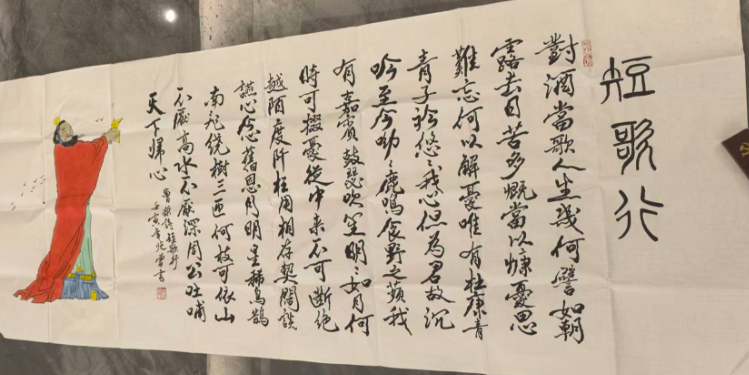 短歌行
對酒當歌人生幾何譬如朝
露去日苦多慨當以慷憂思
難忘何以解憂唯有杜康青
青子衿悠々我心但為君故沉
吟至今呦々鹿鳴食野之蘋我
有嘉賓鼓瑟吹笙明々如月何
時可掇憂從中来不可断绝
越陌度阡枉用相存契闊談
讌心念舊恩月明星稀烏鵲
南飛绕樹三匝何枝可依山
不厭高水不厭深周公吐哺
天下歸心
曹操詩短歌行
壬寅書